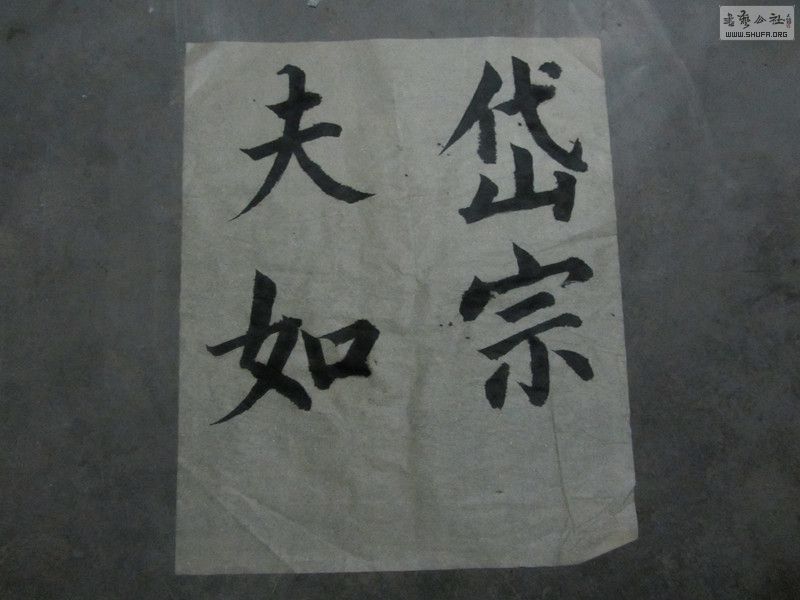 岱宗
夫如
书艺公社
WWW.SHUFA.ORG